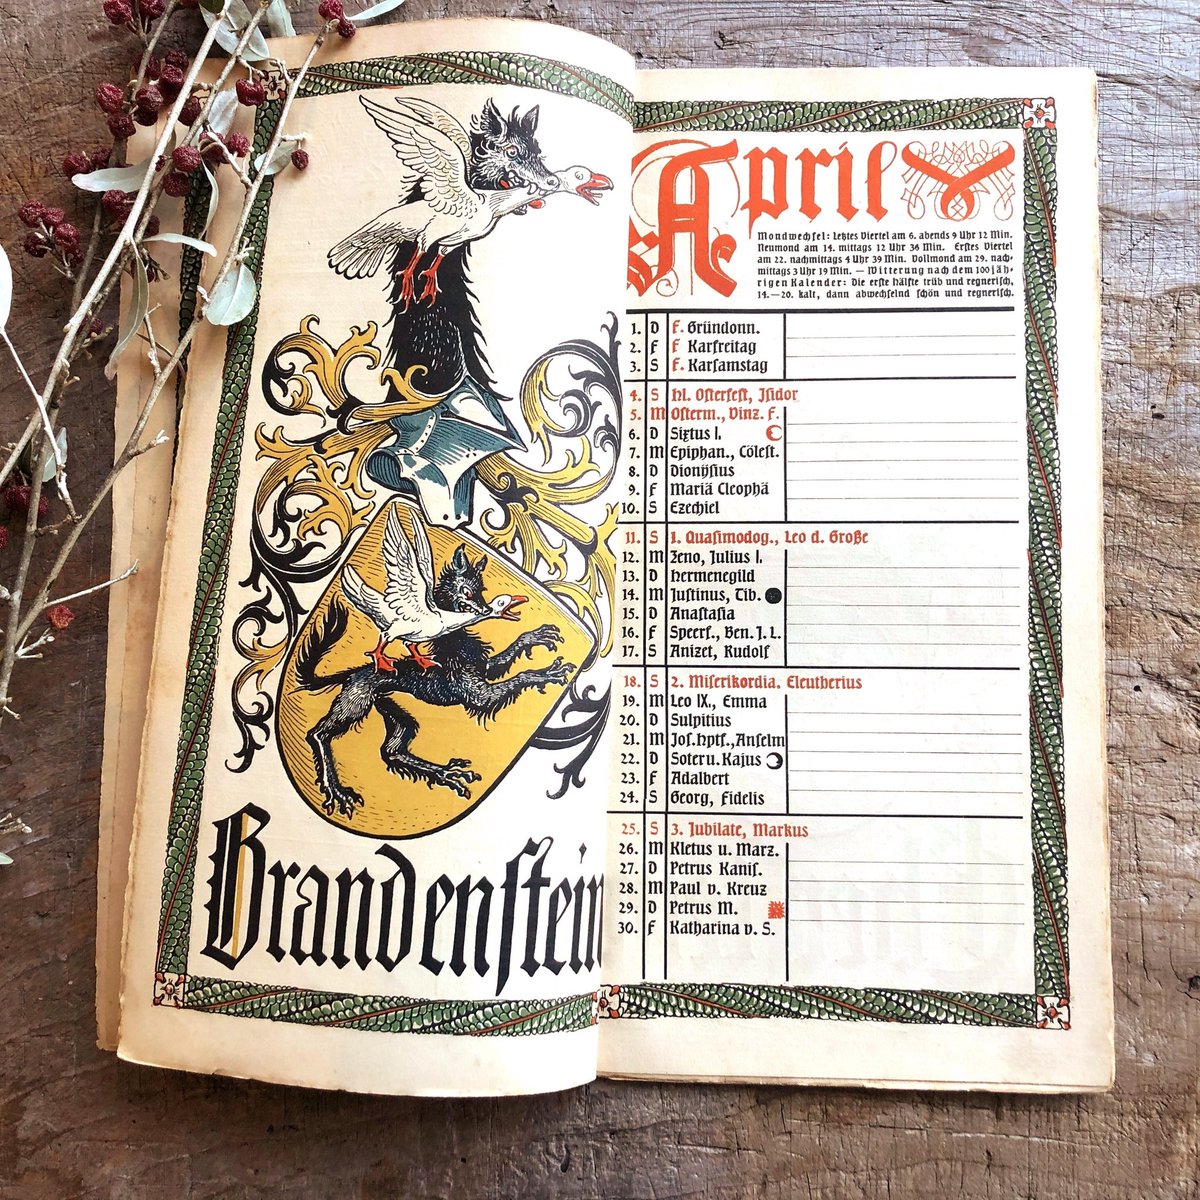 Brandenstein
April
Mondwechsel: Letztes Viertel am 6. abends 9 Uhr 12 Min.
Neumond am 14. mittags 12 Uhr 36 Min. Erstes Viertel
am 22. nachmittags 4 Uhr 39 Min. Vollmond am 29. nach-
mittags 3 Uhr 19 Min. — Witterung nach dem 100jäh-
rigen Kalender: Die erste Hälfte trüb und regnerisch,
14.—20. kalt, dann abwechselnd schön und regnerisch.
1. D F. Gründonn.
2. F F Karfreitag
3. S F. Karsamstag
4. S Hl. Osterfest, Isidor
5. M Osterm., Vinz. F.
6. D Sixtus I.
7. M Epiphan., Cölest.
8. D Dionysius
9. F Mariä Cleophä
10. S Ezechiel
11. S 1. Quasimodog., Leo d. Große
12. M Zeno, Julius I.
13. D Hermenegild
14. M Justinus, Tib.
15. D Anastasia
16. F Speers., Ben. J. L.
17. S Anizet, Rudolf
18. S 2. Miserikordia. Eleutherius
19. M Leo IX., Emma
20. D Sulpitius
21. M Jos. Hpts., Anselm
22. D Soter u. Kajus
23. F Adalbert
24. S Georg, Fidelis
25. S 3. Jubilate, Markus
26. M Kletus u. Marz.
27. D Petrus Kanis.
28. M Paul v. Kreuz
29. D Petrus M.
30. F Katharina v. S.